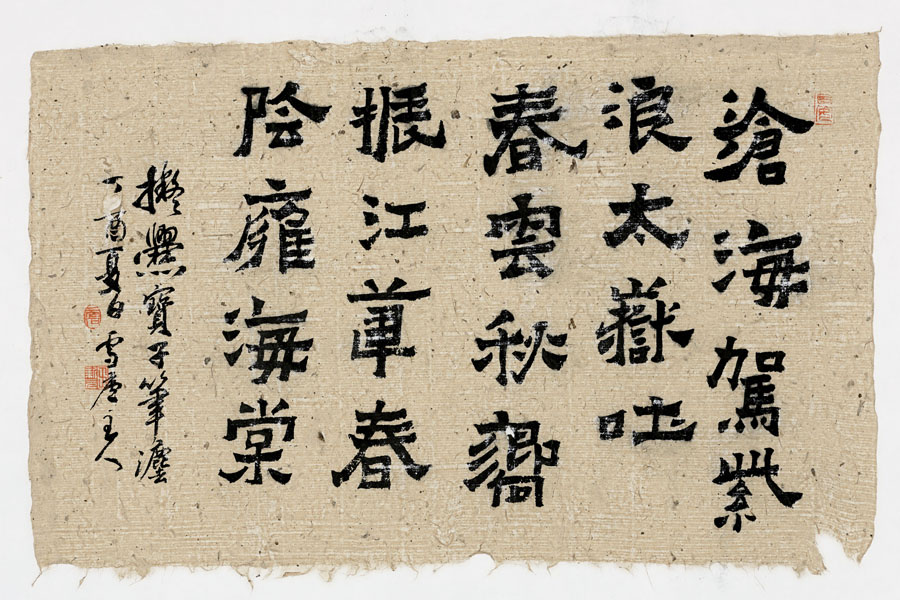 滄海駕紫
浪太嶽吐
春雲秋響
振江草春
陰雁海棠
擬爨寶子筆灋
丁酉夏日雪廬主人